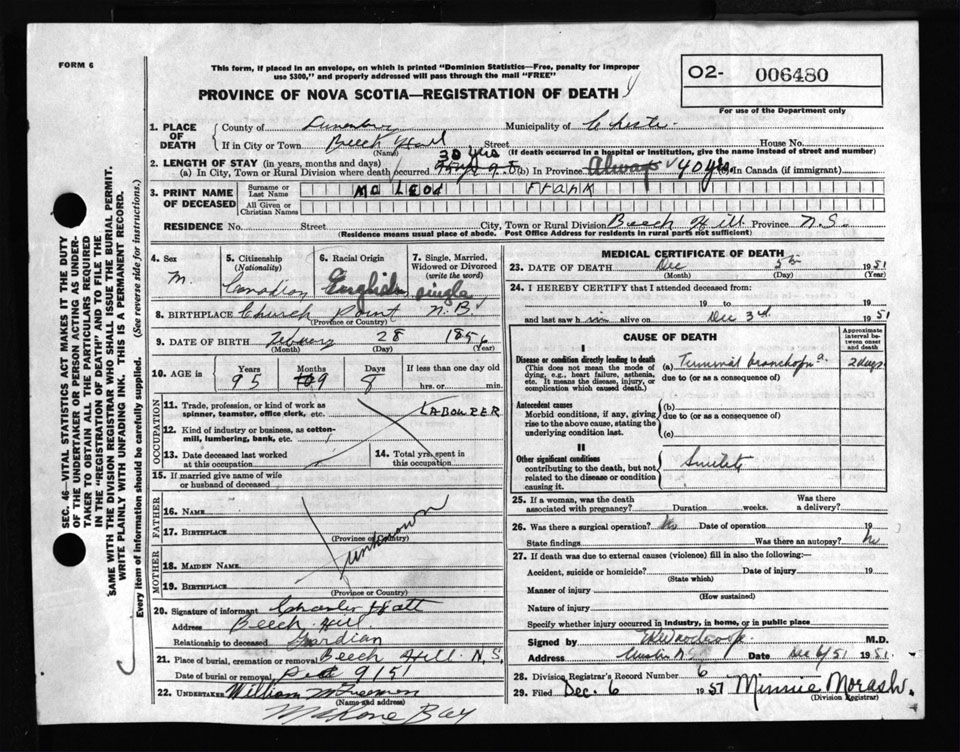 FORM 6
This form, if placed in an envelope, on which is printed "Dominion Statistics—Free, penalty for improper
use $300," and properly addressed will pass through the mail "FREE"
PROVINCE OF NOVA SCOTIA—REGISTRATION OF DEATH
O2- 006480
For use of the Department only
1. PLACE OF DEATH
County of Lunenburg Municipality of Chester
If in City or Town Beech Hill Street House No.
(Name) (If death occurred in a hospital or institution, give the name instead of street and number)
2. LENGTH OF STAY (in years, months and days) 30 yrs
(a) In City, Town or Rural Division where death occurred (b) In Province Always 40 yrs. (c) In Canada (if immigrant)
3. PRINT NAME OF DECEASED
Surname or Last Name MC LEOD Frank
All Given or Christian Names
RESIDENCE No. Street City, Town or Rural Division Beech Hill Province N.S.
(Residence means usual place of abode. Post Office Address for residents in rural parts not sufficient)
4. Sex
M.
5. Citizenship
(Nationality)
Canadian
6. Racial Origin
English
7. Single, Married,
Widowed or Divorced
(write the word)
single
8. BIRTHPLACE Church Point N.B.
(Province or Country)
9. DATE OF BIRTH 28 1856
(Month) (Day) (Year)
10. AGE in
Years Months Days If less than one day old
95 9 8 hrs. or min.
OCCUPATION
11. Trade, profession, or kind of work as
spinner, teamster, office clerk, etc. LABOURER
12. Kind of industry or business, as cotton-
mill, lumbering, bank, etc.
13. Date deceased last worked
at this occupation
14. Total yrs. spent in
this occupation
15. If married give name of wife
or husband of deceased
FATHER
16. NAME
17. BIRTHPLACE
(Province or Country)
unknown
MOTHER
18. MAIDEN NAME
19. BIRTHPLACE
(Province or Country)
20. Signature of informant Charles Hatt
Address Beech Hill
Relationship to deceased Gardian
21. Place of burial, cremation or removal Beech Hill N.S.
Date of burial or removal 9 151
22. UNDERTAKER William
(Name and address)
Mahone Bay
MEDICAL CERTIFICATE OF DEATH
23. DATE OF DEATH Dec 5 1951
(Month) (Day) (Year)
24. I HEREBY CERTIFY that I attended deceased from:
19 to 19
and last saw h im alive on Dec 3rd 1951
CAUSE OF DEATH
Approximate
interval be-
tween onset
and death
I
Disease or condition directly leading to death
(This does not mean the mode of
dying, e.g., heart failure, asthenia,
etc. It means the disease, injury, or
complication which caused death.)
(a) Terminal 2 days
due to (or as a consequence of)
Antecedent causes
Morbid conditions, if any, giving
rise to the above cause, stating the
underlying condition last.
(b)
due to (or as a consequence of)
(c)
II
Other significant conditions
contributing to the death, but not
related to the disease or condition
causing it.
25. If a woman, was the death
associated with pregnancy? Duration weeks. Was there
a delivery?
26. Was there a surgical operation? No Date of operation 19
State findings Was there an autopsy? No
27. If death was due to external causes (violence) fill in also the following:—
Accident, suicide or homicide? Date of injury 19
(State which)
Manner of injury
(How sustained)
Nature of injury
Specify whether injury occurred in industry, in home, or in public place
Signed by M.D.
Address Date Dec 6/51 1951.
28. Division Registrar's Record Number 6
29. Filed Dec. 6 1951 Minnie Morash.
(Division Registrar)
SEC. 46—VITAL STATISTICS ACT MAKES IT THE DUTY
OF THE UNDERTAKER OR PERSON ACTING AS UNDER-
TAKER TO OBTAIN ALL THE PARTICULARS REQUIRED
IN THE "REGISTRATION OF DEATH" AND TO FILE THE
SAME WITH THE DIVISION REGISTRAR WHO SHALL ISSUE THE BURIAL PERMIT.
WRITE PLAINLY WITH UNFADING INK. THIS IS A PERMANENT RECORD.
Every item of information should be carefully supplied. (See reverse side for instructions.)